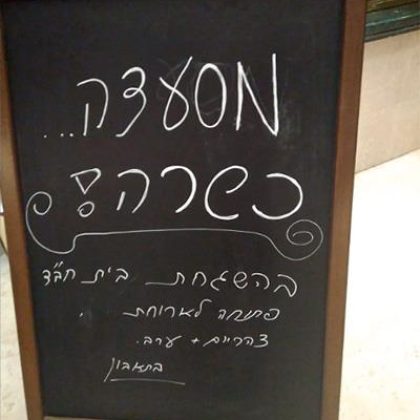 מסעדה...
כשרה!
בהשגחת בית חב"ד
פתוחה לארוחת
צהריים + ערב.
בתאבון